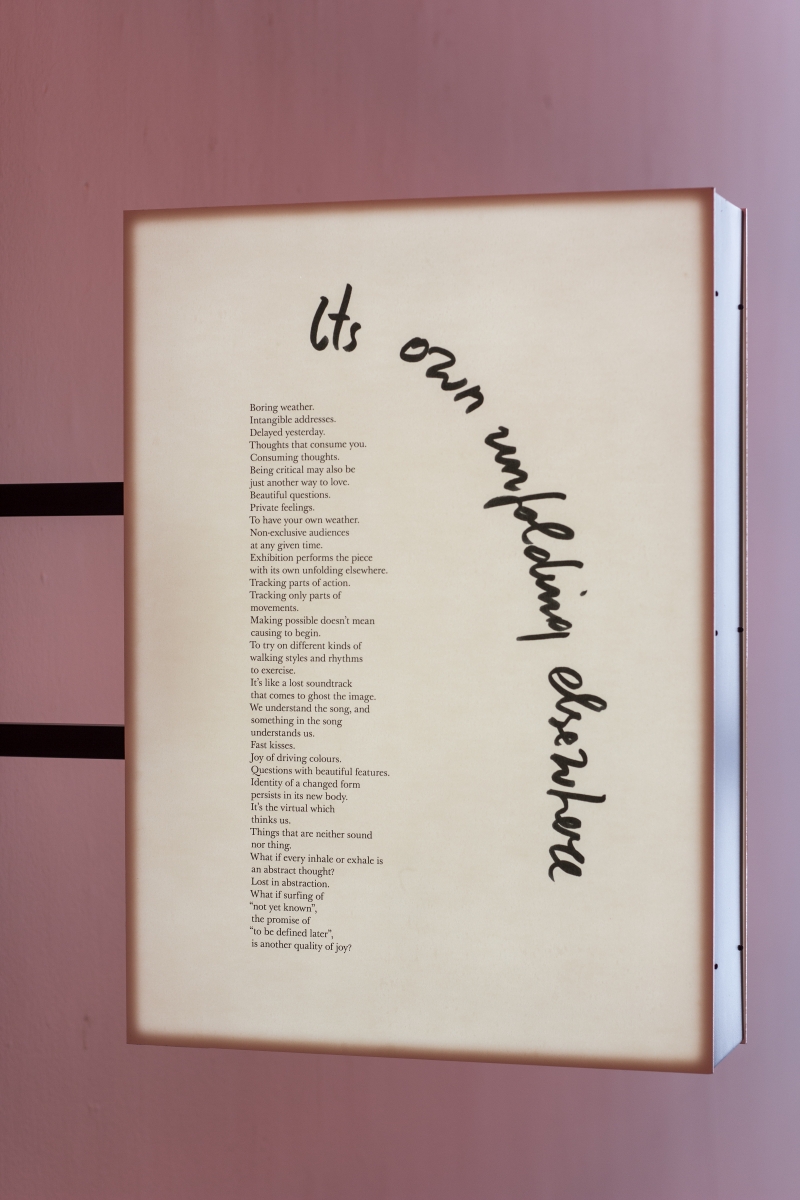 Its own unfolding elsewhere
Boring weather.
Intangible addresses.
Delayed yesterday.
Thoughts that consume you.
Consuming thoughts.
Being critical may also be
just another way to love.
Beautiful questions.
Private feelings.
To have your own weather.
Non-exclusive audiences
at any given time.
Exhibition performs the piece
with its own unfolding elsewhere.
Tracking parts of action.
Tracking only parts of
movements.
Making possible doesn't mean
causing to begin.
To try on different kinds of
walking styles and rhythms
to exercise.
It's like a lost soundtrack
that comes to ghost the image.
We understand the song, and
something in the song
understands us.
Fast kisses.
Joy of driving colours.
Questions with beautiful features.
Identity of a changed form
persists in its new body.
It's the virtual which
thinks us.
Things that are neither sound
nor thing.
What if every inhale or exhale is
an abstract thought?
Lost in abstraction.
What if surfing of
“not yet known”,
the promise of
“to be defined later”,
is another quality of joy?